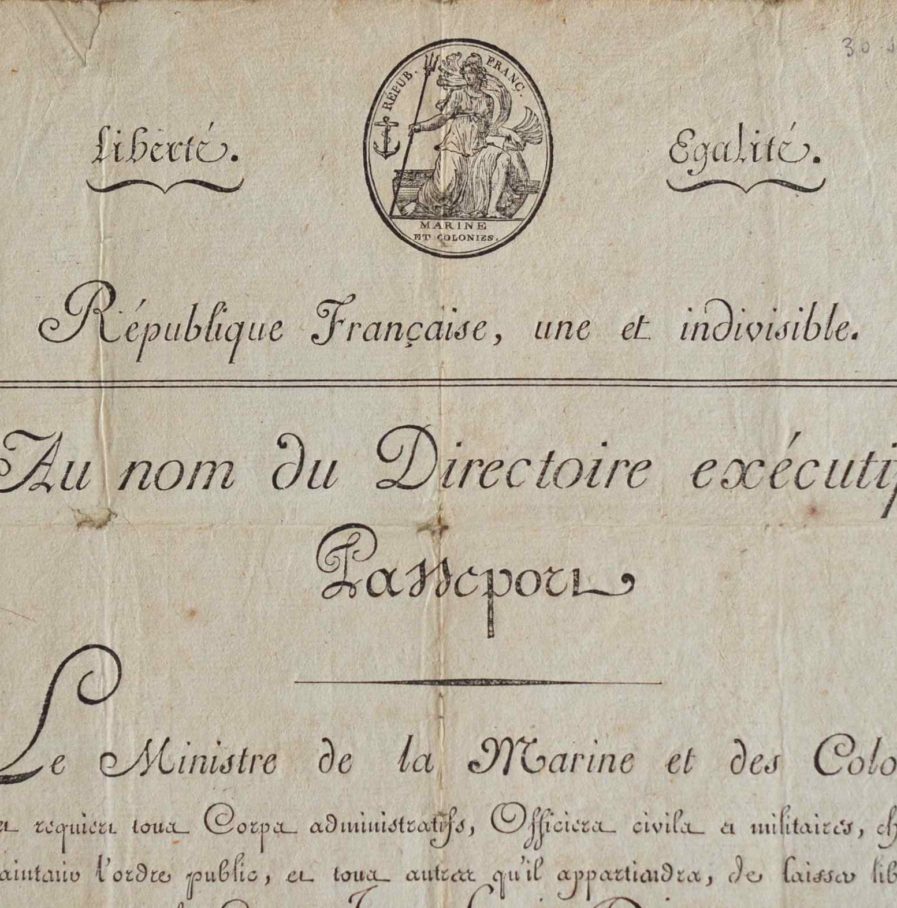 30
RÉPUB. FRANC.
Liberté. Egalité.
MARINE
ET COLONIES.
République Française, une et indivisible.
Au nom du Directoire exécutif
Passeport
Le Ministre de la Marine et des Colo
et requiert tous Corps administratifs, Officiers civils et militaires, ch
aintenir l'ordre public, et tous autres qu'il appartiendra, de laisser lib